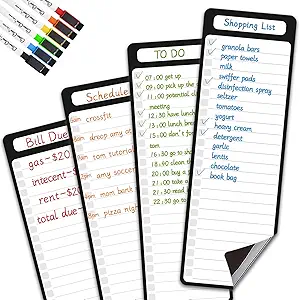 Bill Due
gas-$20
intecent-$
rent-$20
total due-
Schedule
9am crossfit
9am drop amy at
tom tutorial
amy soccer
mom bank
pizza nigh
TO DO
07:00 get up
09:00 pick up the
11:00 potential cl
meeting
12:30 have lunch
13:00 lunch brea
15:00 don't for
tom
16:30 go to sho
18:50 clean the
20:00 play bas
21:00 take a
21:30 read
22:00 go to
Shopping List
granola bars
paper towels
milk
swiffer pads
disinfection spray
seltzer
tomatoes
yogurt
heavy cream
detergent
garlic
lentils
chocolate
book bag